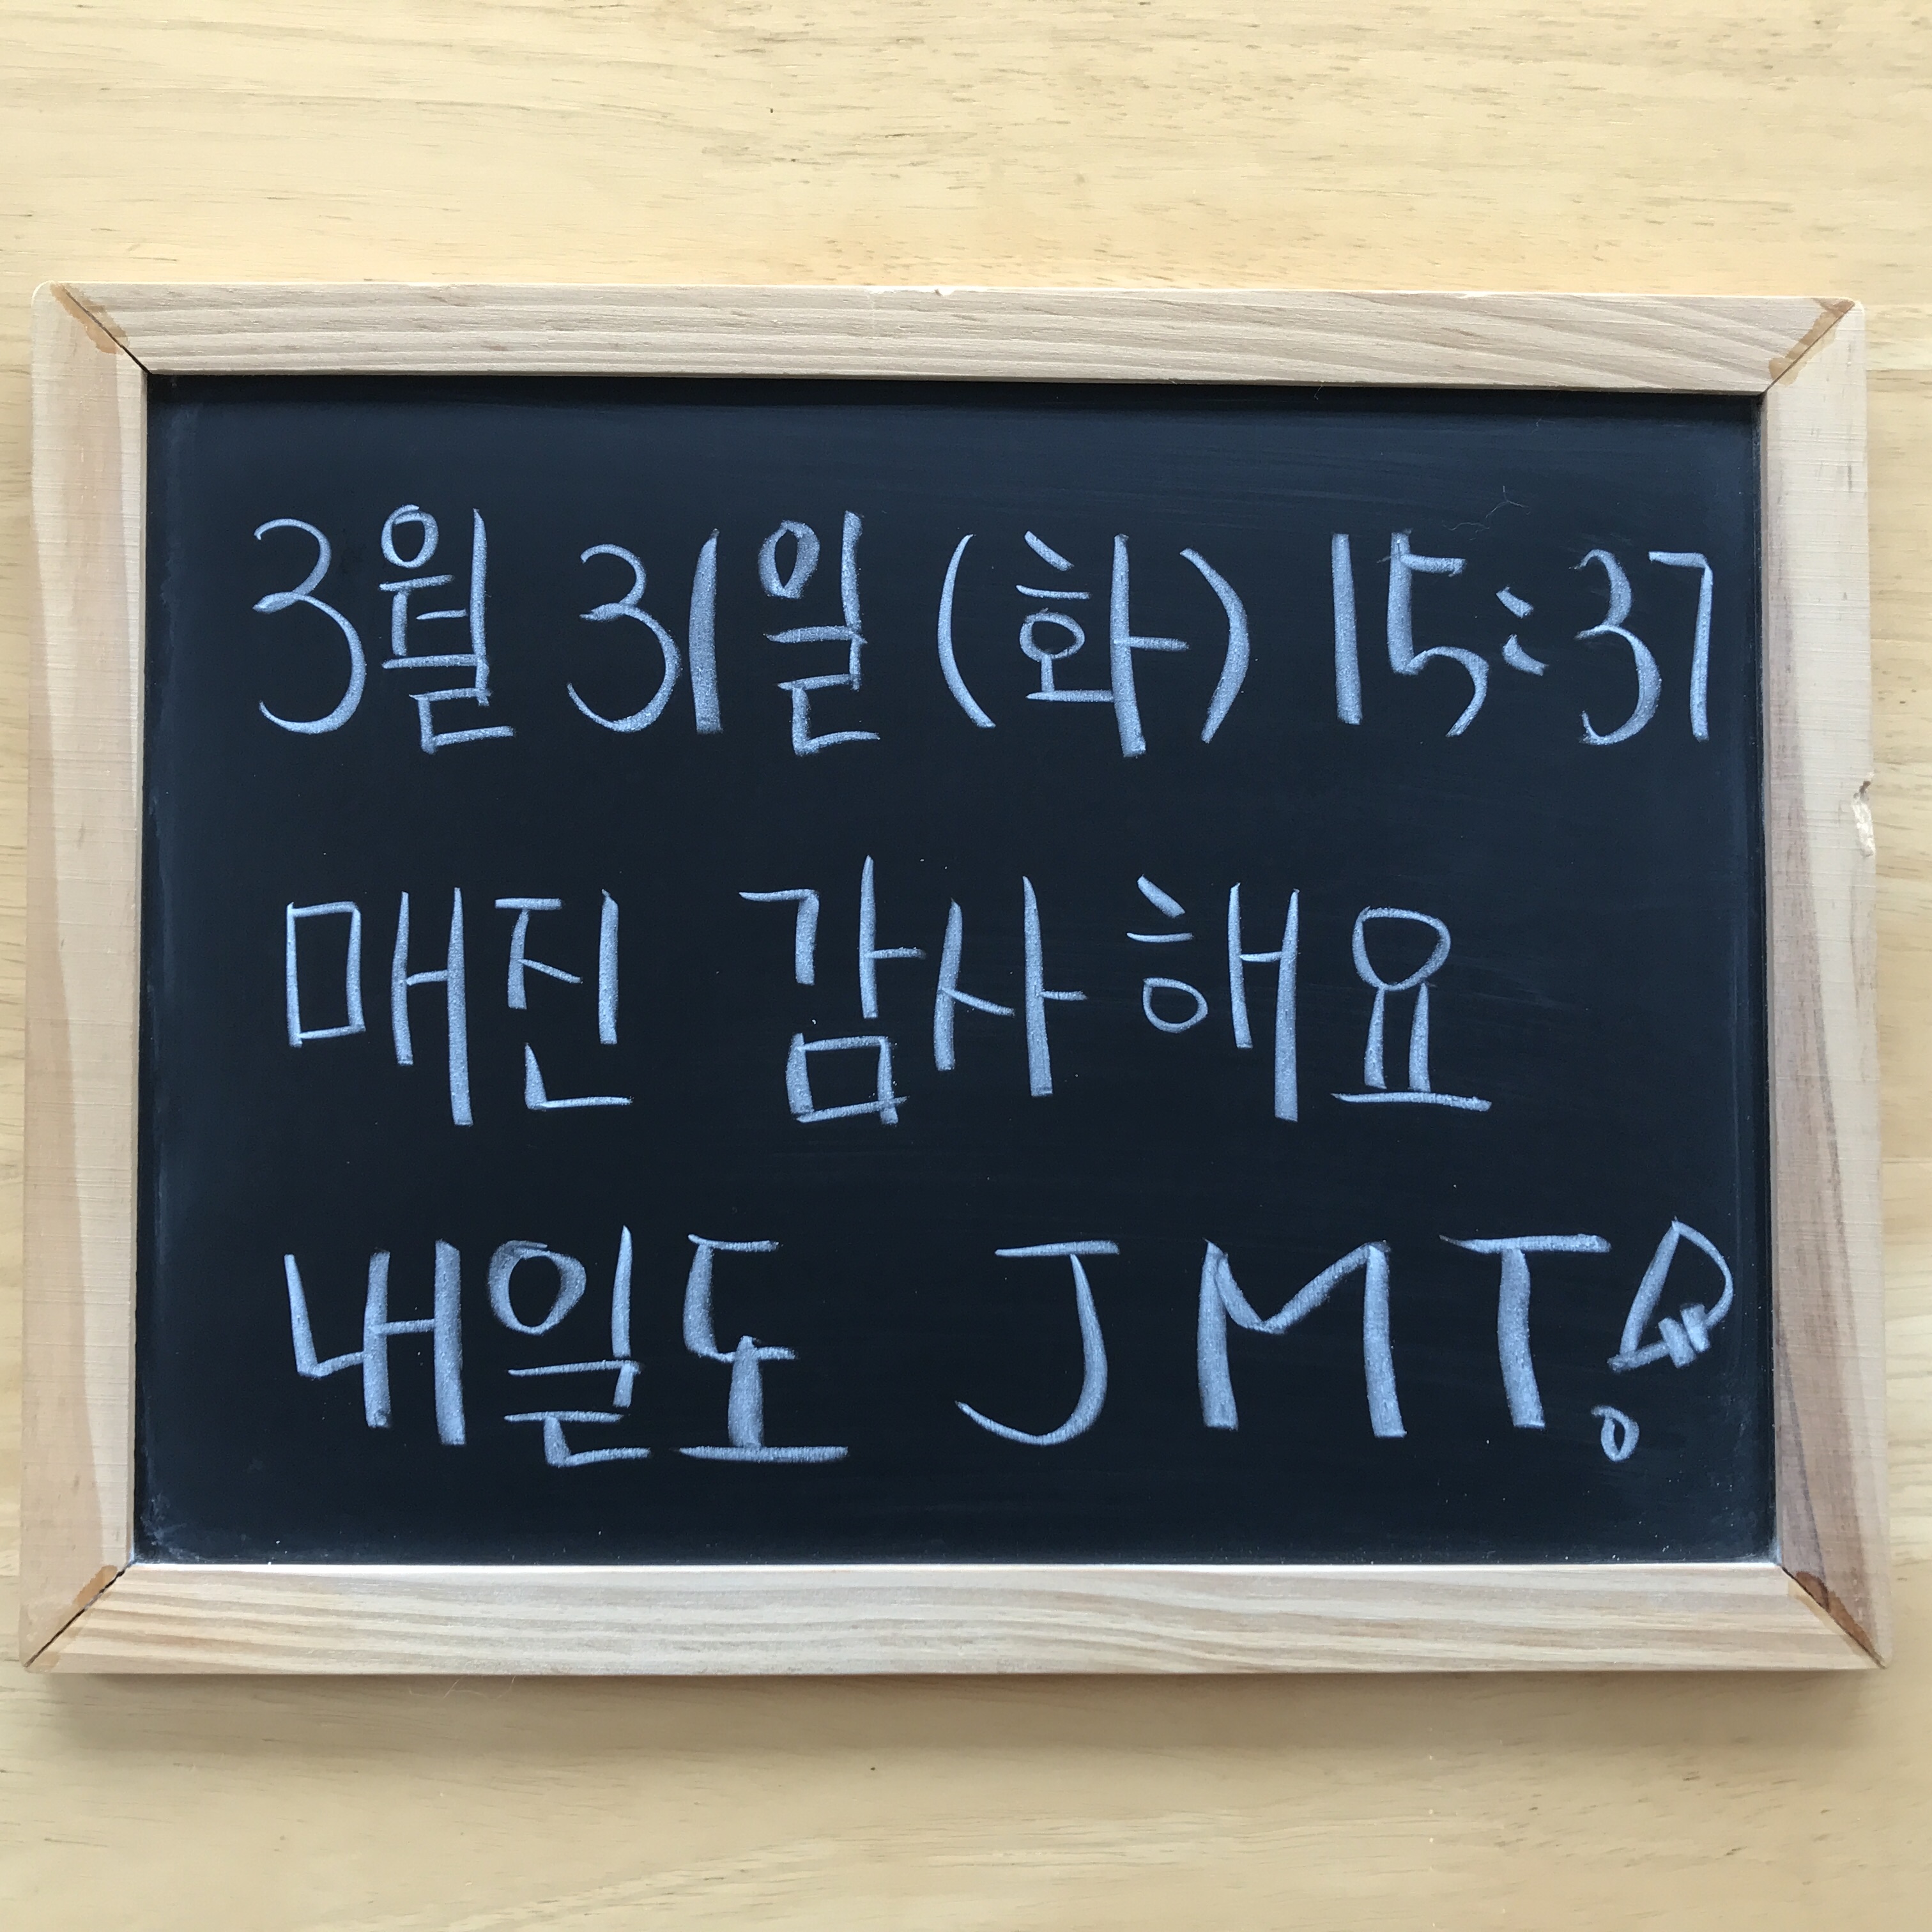 3월 31일 (화) 15:37
매진 감사해요
내일도 JMT!